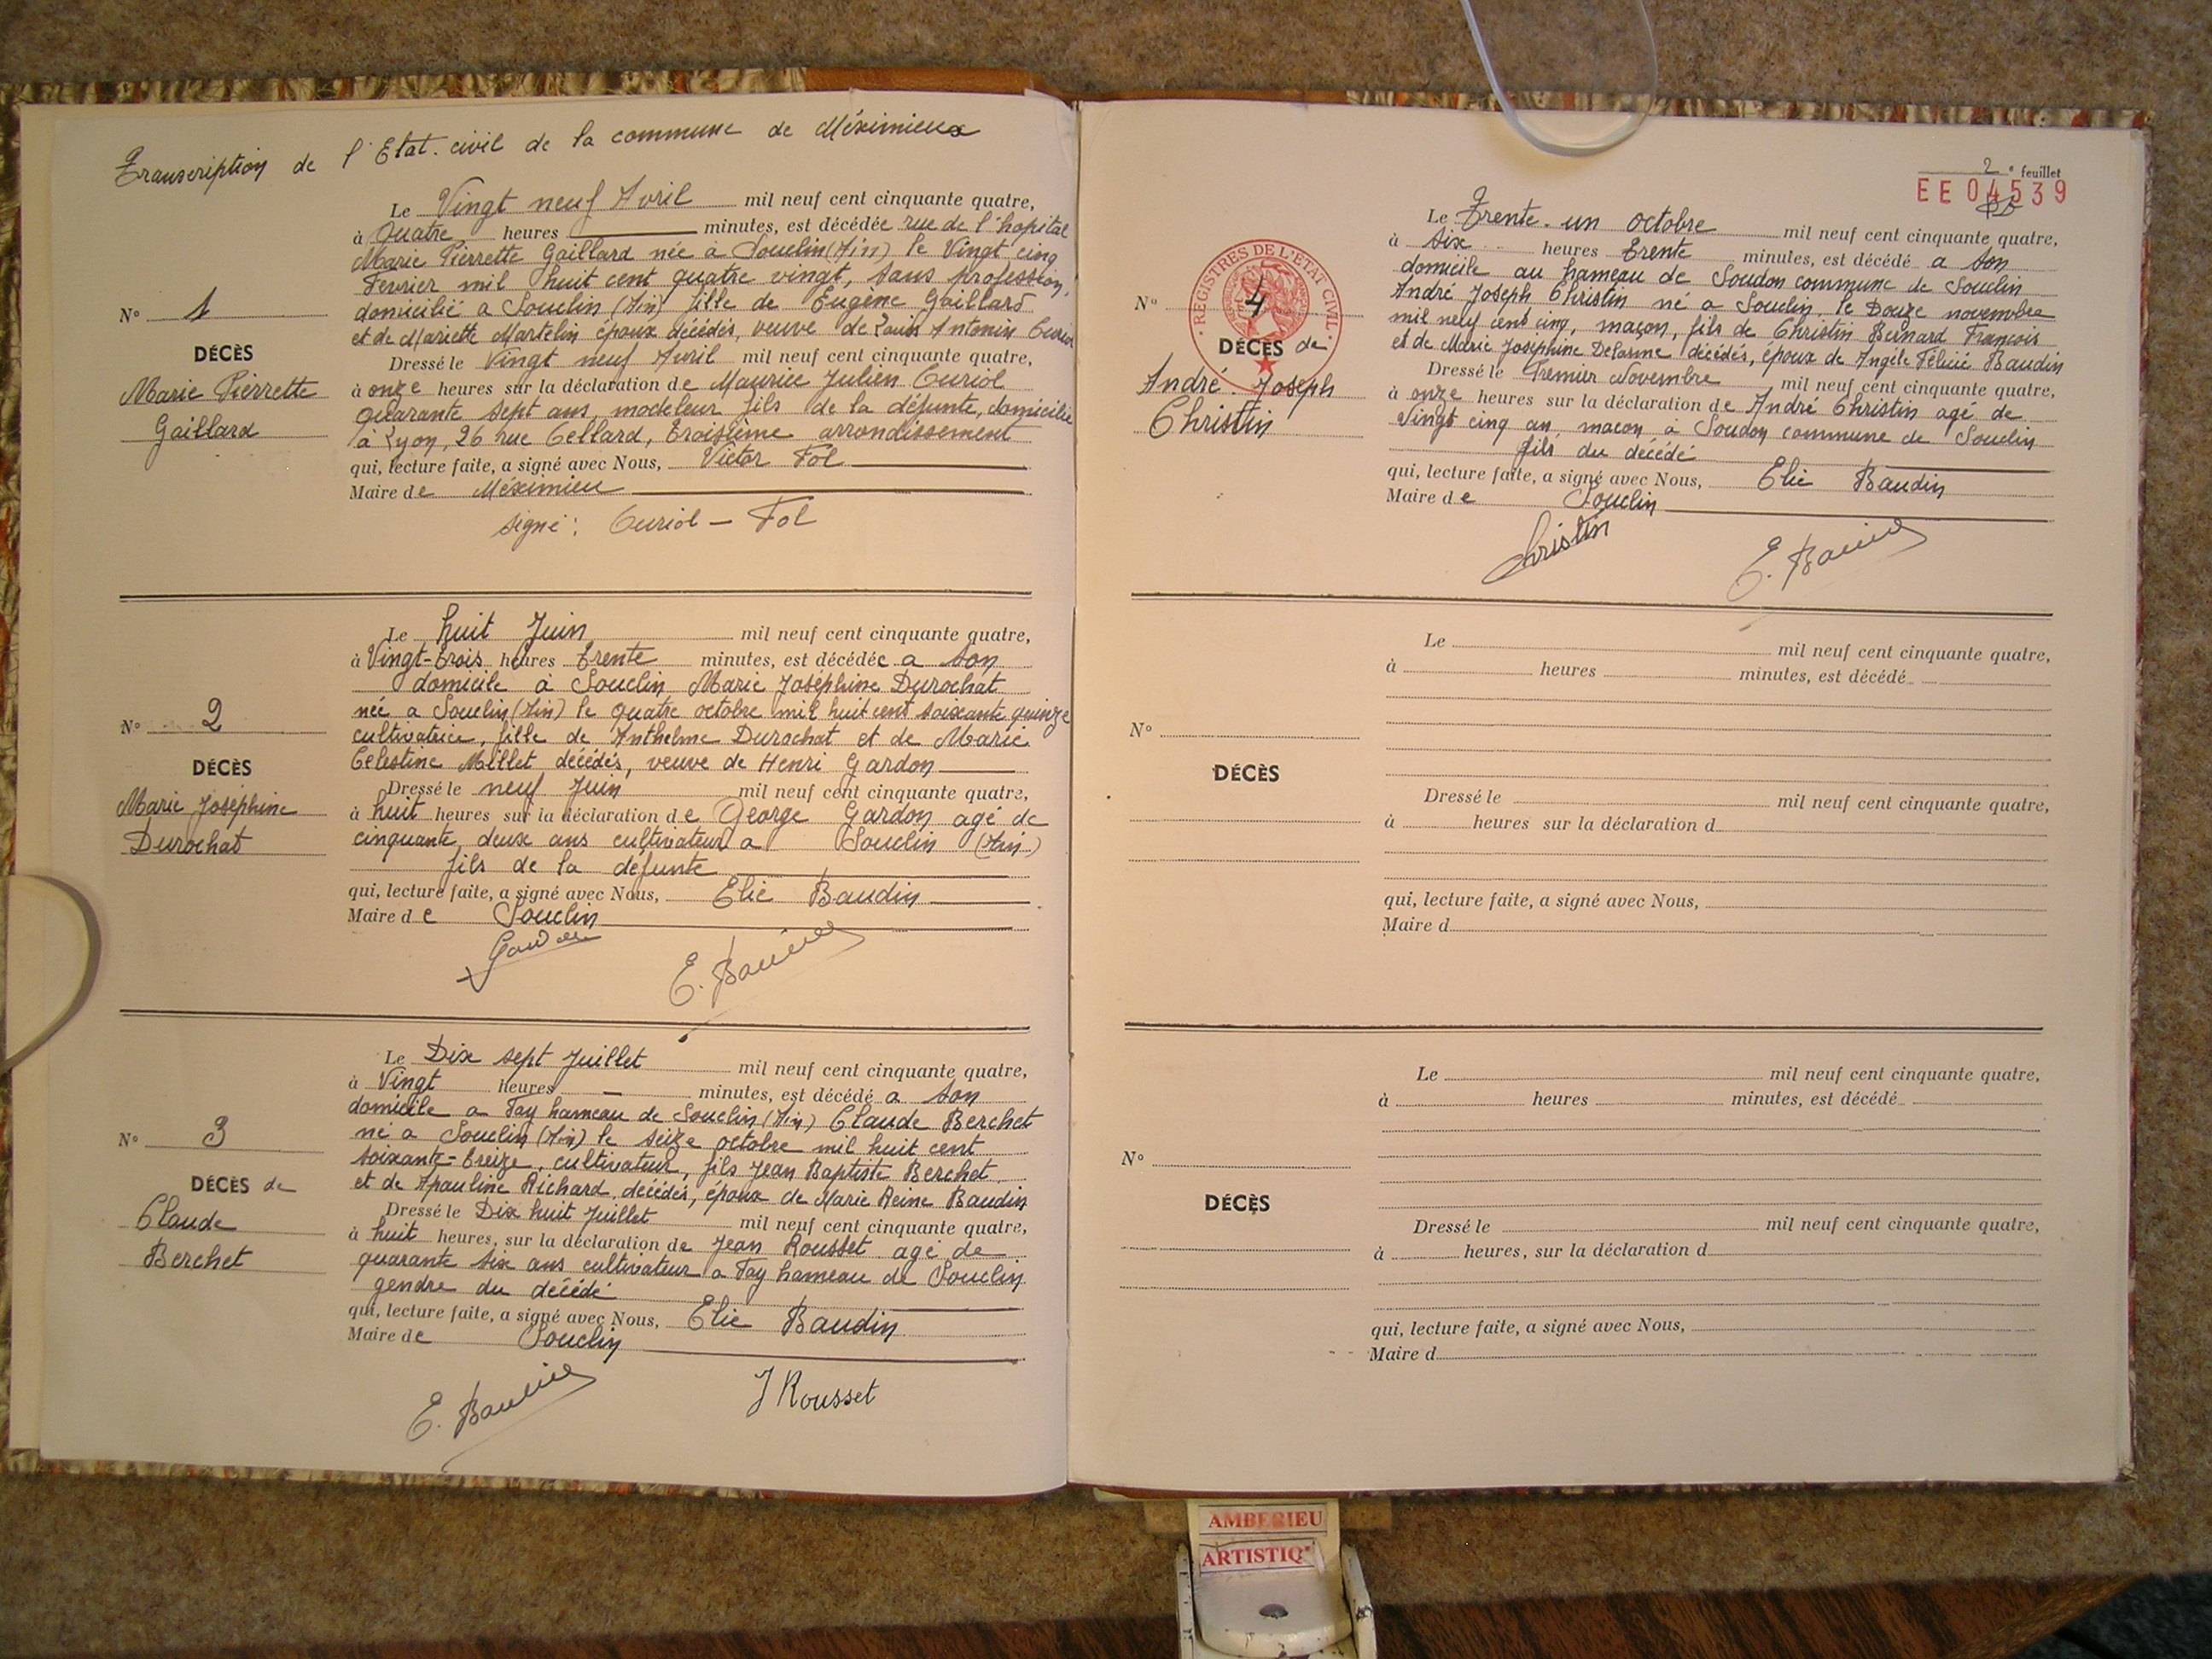 Transcription de l'Etat-civil de la commune de Méximieux
Le Vingt neuf Avril mil neuf cent cinquante quatre,
à Quatre heures minutes, est décédée rue de l'hopital
Marie Pierrette Gaillard née à Souclin (Ain) le Vingt cinq
Fevrier mil huit cent quatre vingt, sans profession,
domicilié a Souclin (Ain) fille de Eugène Gaillard
et de Mariette Martelin époux décédés, veuve de Louis Antonin Curiol
Dressé le Vingt neuf Avril mil neuf cent cinquante quatre,
à onze heures sur la déclaration de Maurice Julien Curiol
quarante sept ans, modeleur fils de la défunte, domicilié
à Lyon, 26 rue Cellard, troisième arrondissement
qui, lecture faite, a signé avec Nous, Victor Fol
Maire de Méximieu
signé : Curiol - Fol
N° 1
DÉCÈS
Marie Pierrette
Gaillard
Le huit Juin mil neuf cent cinquante quatre,
à Vingt-trois heures trente minutes, est décédée a son
domicile à Souclin Marie Joséphine Durochat
née a Souclin (Ain) le quatre octobre mil huit cent soixante quinze
cultivatrice, fille de Anthelme Durochat et de Marie
Celestine Millet décédés, veuve de Henri Gardon
Dressé le neuf Juin mil neuf cent cinquante quatre,
à huit heures sur la déclaration de George Gardon agé de
cinquante deux ans cultivateur a Souclin (Ain)
fils de la défunte
qui, lecture faite, a signé avec Nous, Elie Baudin
Maire de Souclin
E. Baudin
N° 2
DÉCÈS
Marie Joséphine
Durochat
Le Dix sept Juillet mil neuf cent cinquante quatre,
à Vingt heures — minutes, est décédé a son
domicile a Fay hameau de Souclin (Ain) Claude Berchet
né a Souclin (Ain) le seize octobre mil huit cent
soixante-treize, cultivateur, fils Jean Baptiste Berchet
et de Apauline Richard, décédés, époux de Marie Reine Baudin
Dressé le Dix huit Juillet mil neuf cent cinquante quatre,
à huit heures, sur la déclaration de Jean Rousset agé de
quarante six ans cultivateur a Fay hameau de Souclin
gendre du décédé
qui, lecture faite, a signé avec Nous, Elie Baudin
Maire de Souclin
E. Baudin J Rousset
N° 3
DÉCÈS de
Claude
Berchet
2e feuillet
EE04539
Le Trente-un octobre mil neuf cent cinquante quatre,
à six heures trente minutes, est décédé a son
domicile au hameau de Soudon commune de Souclin
André Joseph Christin né a Souclin, le Douze novembre
mil neuf cent cinq, maçon, fils de Christin Bernard François
et de Marie Joséphine décédés, époux de Angèle Félicie Baudin
Dressé le Premier Novembre mil neuf cent cinquante quatre,
à onze heures sur la déclaration de André Christin agé de
Vingt cinq an, maçon a Soudon commune de Souclin
fils du décédé
qui, lecture faite, a signé avec Nous, Elie Baudin
Maire de Souclin
Christin E. Baudin
REGISTRES DE L'ÉTAT CIVIL
N° 4
DÉCÈS de
André Joseph
Christin
Le mil neuf cent cinquante quatre,
à heures minutes, est décédé
N°
DÉCÈS
Dressé le mil neuf cent cinquante quatre,
à heures sur la déclaration d
qui, lecture faite, a signé avec Nous,
Maire d
Le mil neuf cent cinquante quatre,
à heures minutes, est décédé
N°
DÉCÈS
Dressé le mil neuf cent cinquante quatre,
à heures, sur la déclaration d
qui, lecture faite, a signé avec Nous,
Maire d
AMBERIEU
ARTISTIQ